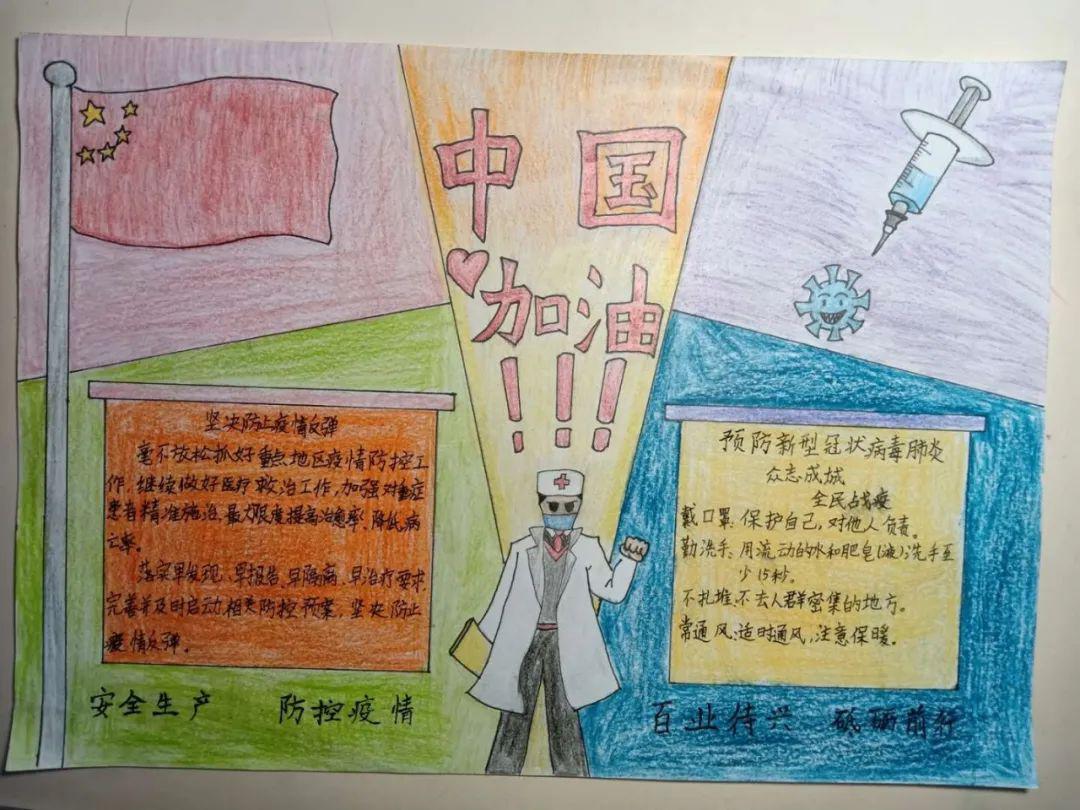 中国
加油
!!!
坚决防止疫情反弹
毫不放松抓好重点地区疫情防控工
作,继续做好医疗救治工作,加强对重症
患者精准施治,最大限度提高治愈率,降低病
亡率。
落实早发现、早报告、早隔离、早治疗要求,
完善并及时启动相关防控预案,坚决防止
疫情反弹。
预防新型冠状病毒肺炎
众志成城
全民战疫
戴口罩:保护自己,对他人负责。
勤洗手:用流动的水和肥皂(液)洗手至
少15秒。
不扎堆:不去人群密集的地方。
常通风:适时通风,注意保暖。
安全生产 防控疫情
百业待兴 砥砺前行